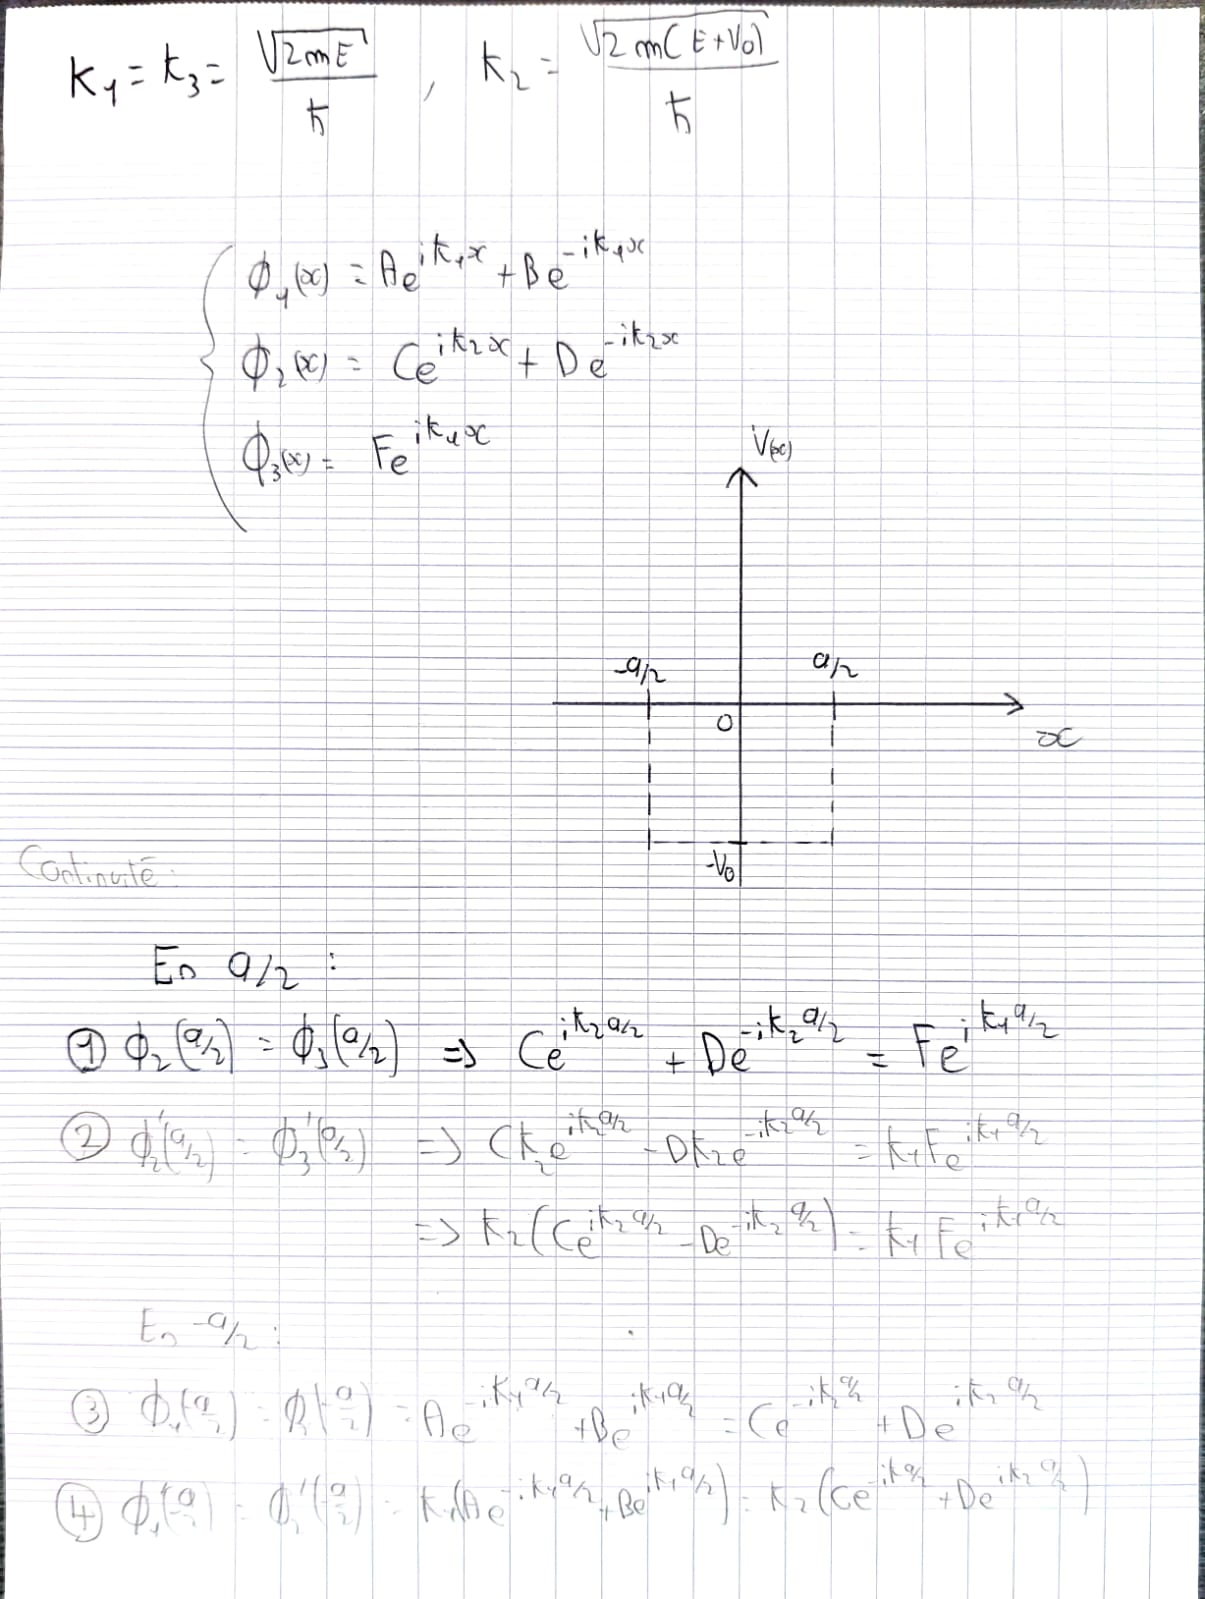 K₁ = k₃ = √(2mE) / ħ , k₂ = √(2m(E+V₀)) / ħ
ϕ₁(x) = Ae^{ik₁x} + Be^{-ik₁x}
ϕ₂(x) = Ce^{ik₂x} + De^{-ik₂x}
ϕ₃(x) = Fe^{ik₁x}
V(x)
-a/2 a/2
0
x
-V₀
Continuité :
En a/2 :
① ϕ₂(a/2) = ϕ₃(a/2) => Ce^{ik₂a/2} + De^{-ik₂a/2} = Fe^{ik₁a/2}
② ϕ₂'(a/2) = ϕ₃'(a/2) => Ck₂e^{ik₂a/2} - Dk₂e^{-ik₂a/2} = k₁Fe^{ik₁a/2}
=> k₂(Ce^{ik₂a/2} - De^{-ik₂a/2}) = k₁Fe^{ik₁a/2}
En -a/2 :
③ ϕ₁(-a/2) = ϕ₂(-a/2) = Ae^{-ik₁a/2} + Be^{ik₁a/2} = Ce^{-ik₂a/2} + De^{ik₂a/2}
④ ϕ₁'(-a/2) = ϕ₂'(-a/2) = k₁(Ae^{-ik₁a/2} + Be^{ik₁a/2}) = k₂(Ce^{-ik₂a/2} + De^{ik₂a/2})